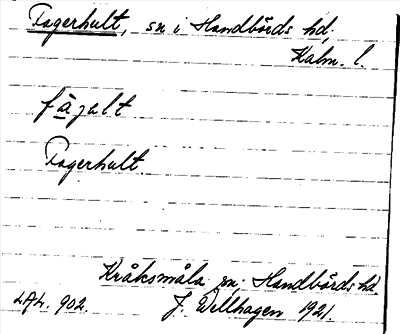 Fagerhult, sn i Handbörds hd,
Kalm. l.
fàgult
Fagerhult.
Kråksmåla sn; Handbörds hd
LAL. 902. J. Wellhagen 1921.